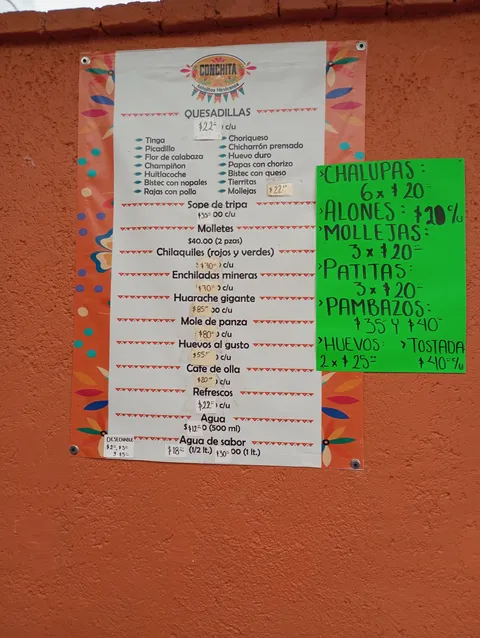 CONCHITA
Antojitos Mexicanos
QUESADILLAS
$22 c/u
Tinga
Picadillo
Flor de calabaza
Champiñon
Huitlacoche
Bistec con nopales
Rajas con pollo
Choriqueso
Chicharrón prensado
Huevo duro
Papas con chorizo
Bistec con queso
Tierritas
Mollejas $22
Sope de tripa
$35 00 c/u
Molletes
$40.00 (2 pzas)
Chilaquiles (rojos y verdes)
c/u
Enchiladas mineras
$70 c/u
Huarache gigante
$85 00 c/u
Mole de panza
$80 c/u
Huevos al gusto
$55 c/u
Café de olla
$20 c/u
Refrescos
$22 c/u
Agua
$12 0 (500 ml)
Agua de sabor
$18 (1/2 lt.) $30 00 (1 lt.)
DESECHABLE
$2 $3
y $5
>CHALUPAS:
6 x $20
>ALONES: $20 c/u
>MOLLEJAS:
3 x $20
>PATITAS:
3 x $20
>PAMBAZOS:
$35 y $40
>HUEVOS:
2 x $25
>TOSTADA
$40 c/u